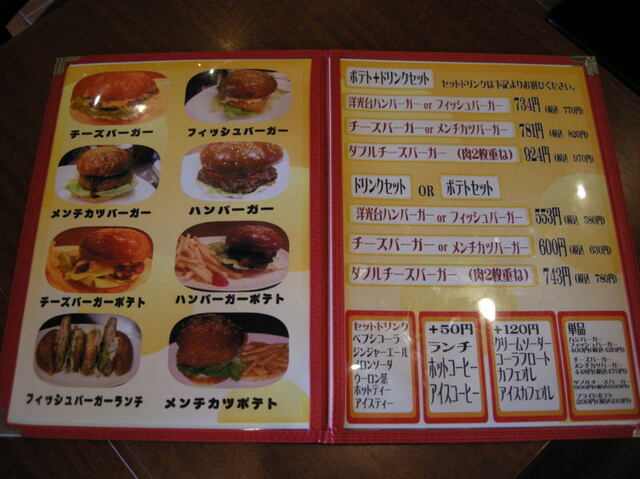 チーズバーガー
フィッシュバーガー
メンチカツバーガー
ハンバーガー
チーズバーガーポテト
ハンバーガーポテト
フィッシュバーガーランチ
メンチカツポテト
ポテト+ドリンクセット
セットドリンクは下記よりお選びください。
洋光台ハンバーガー or フィッシュバーガー 734円 (税込 770円)
チーズバーガー or メンチカツバーガー 781円 (税込 820円)
ダブルチーズバーガー (肉2枚重ね) 924円 (税込 970円)
ドリンクセット OR ポテトセット
洋光台ハンバーガー or フィッシュバーガー 553円 (税込 580円)
チーズバーガー or メンチカツバーガー 600円 (税込 630円)
ダブルチーズバーガー (肉2枚重ね) 743円 (税込 780円)
セットドリンク
ペプシコーラ
ジンジャーエール
メロンソーダ
ウーロン茶
ホットティー
アイスティー
+50円
ランチ
ホットコーヒー
アイスコーヒー
+120円
クリームソーダー
コーラフロート
カフェオレ
アイスカフェオレ
単品
ハンバーガー
フィッシュバーガー
400円(税込420円)
チーズバーガー
メンチカツバーガー
448円(税込470円)
ダブルチーズバーガー
600円(税込630円)
フライドポテト
200円(税込210円)